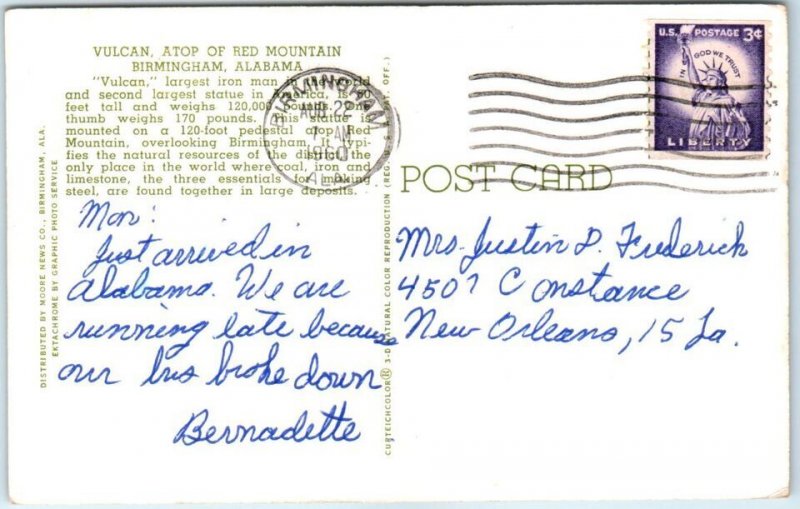 VULCAN, ATOP OF RED MOUNTAIN
BIRMINGHAM, ALABAMA
"Vulcan," largest iron man in the world
and second largest statue in America, is 60
feet tall and weighs 120,000 pounds. One
thumb weighs 170 pounds. This statue is
mounted on a 120-foot pedestal atop Red
Mountain, overlooking Birmingham. It typi-
fies the natural resources of the district the
only place in the world where coal, iron and
limestone, the three essentials for making
steel, are found together in large deposits.
Mon:
Just arrived in
Alabama. We are
running late because
our bus broke down
Bernadette
DISTRIBUTED BY MOORE NEWS CO., BIRMINGHAM, ALA.
EKTACHROME BY GRAPHIC PHOTO SERVICE
CURTEICHCOLOR® 3-D NATURAL COLOR REPRODUCTION (REG. U.S.A. PAT. OFF.)
BIRMINGHAM
AUG 22
AM
1960
ALA.
U.S. POSTAGE 3¢
IN GOD WE TRUST
LIBERTY
POST CARD
Mrs. Justin D. Frederick
4507 Constance
New Orleans, 15 La.